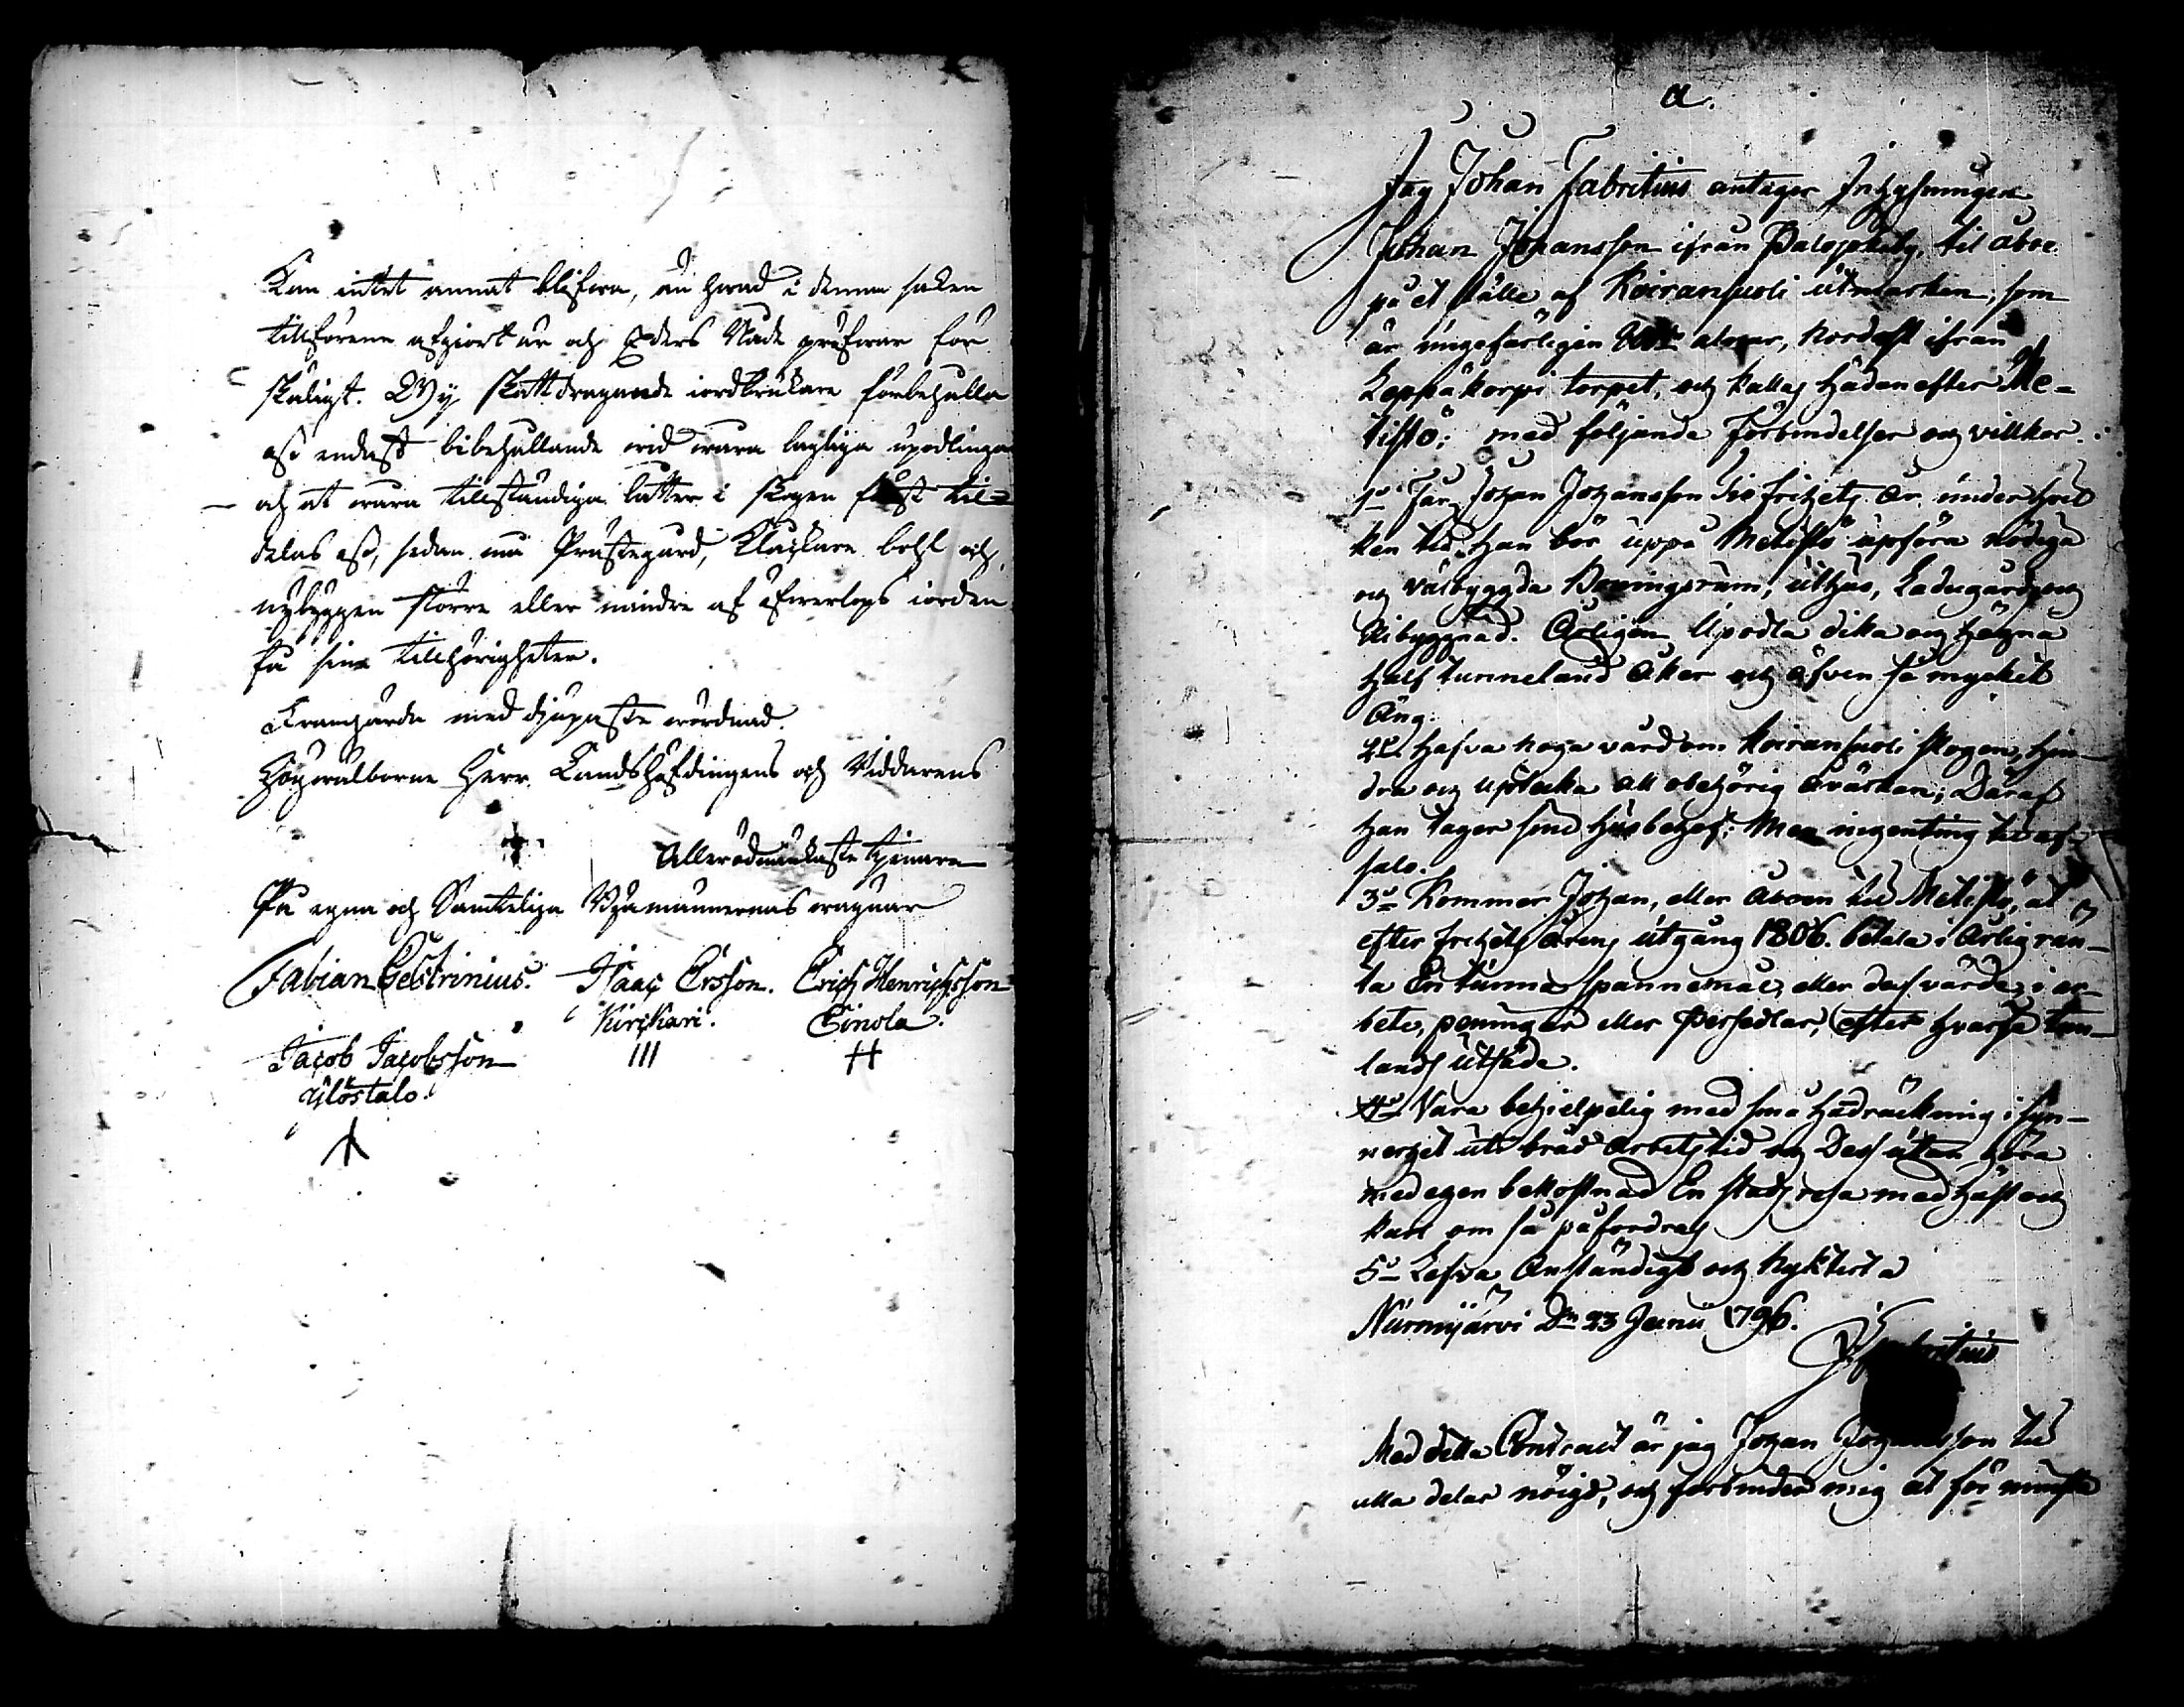 Kan intet annat blifwa, än hwad i denna saken
tillförene afgiort är och Eders Nåde pröfwar för
skäligt. Wy skattdragande iordbrukare förbehålla
oss endast bibehållande wid wåra lagliga upodlingar
och at wåra tillständiga låtter i skogen först til=
delas oss, sedan må Prästegård, Kläckare bohl och
nybyggen större eller mindre af öfwerlops iorden
få sina tillhörigheter.
Framhärda med djupaste wördnad
Högwälborne Herr Landshöfdingens och Riddarens
Allerödmiukaste tjenare
På egna och Samteliga Byamännernas wägnar
Fabian Gestrinius. Isaac Ersson. Erich Henrichsson
Kirckari. Einola.
Jacob Jacobsson III H
Ylöstalo.
a.
Jag Johan Fabritius antager Inhysningen
Johan Johansson ifrån Palojokiby, til åboe
på et ställe af Koiransuoli utmarken, som
är ungefärligen alnar, Nordost ifrån
Leppäkorpi torpet, och kallas hädanefter Me-
tistö; med följande förbindelser och villkor.
1o Får Johan Johansson Tio frihets År under hvil
ken tid han bör uppå Metistö upföra nödiga
och välbyggda Boningsrum, uthus, Ladugård och
Ribyggnad. Årligen Upodla dika och hägna
half tunneland åker och äfven så mycket
Äng.
2o Hafva noga vård om Koiransuoli skogen, hin
dra och uptäcka all obehörig åvärkan; Däraf
han tager sine husbehof; Men ingenting til af-
salo.
3o Kommer Johan, eller åboen til Metistö, at
efter frihets årens utgång 1806. betala i årlig rän-
ta En tunna Spannemål, eller dess värde, i ar-
bete, penningar eller Persedlar, efter hvarje tun-
lands utsäde.
4o Vara behielpelig med små handräckning i syn-
nerhet uti bråd arbetstid och Dessutan göra
med egen bekostnad En stads resa med häst och
karl om så påfordras
5o Lefva Anständigt och Nyktert a
Nurmijärvi Dn 23 Junii 1796.
J Fabritius
Med detta Contract är jag Johan Johansson til
alla delar nöigd, och förbinder mig at för minsta